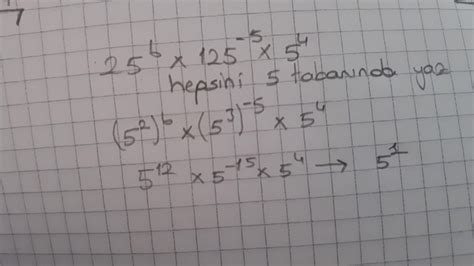 7
25⁶ × 125⁻⁵ × 5⁴
hepsini 5 tabanında yaz
(5²)⁶ × (5³)⁻⁵ × 5⁴
5¹² × 5⁻¹⁵ × 5⁴ → 5¹